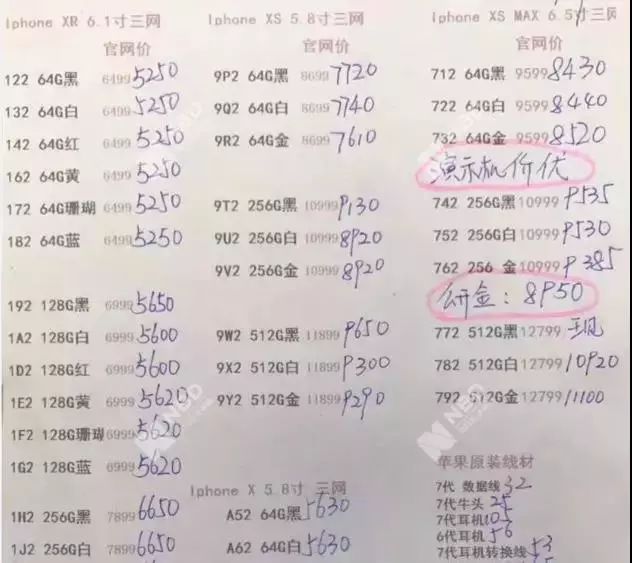 Iphone XR 6.1寸三网
官网价
122 64G黑 6499 5250
132 64G白 6499 5250
142 64G红 6499 5250
162 64G黄 6499 5250
172 64G珊瑚 6499 5250
182 64G蓝 6499 5250
192 128G黑 6999 5650
1A2 128G白 6999 5600
1D2 128G红 6999 5600
1E2 128G黄 6999 5620
1F2 128G珊瑚 6999 5620
1G2 128G蓝 6999 5620
1H2 256G黑 7899 6650
1J2 256G白 7899 6650
Iphone XS 5.8寸三网
官网价
9P2 64G黑 8699 7720
9Q2 64G白 8699 7740
9R2 64G金 8699 7610
9T2 256G黑 10999 9130
9U2 256G白 10999 8920
9V2 256G金 10999 8920
9W2 512G黑 11899 9650
9X2 512G白 11899 9300
9Y2 512G金 11899 9290
Iphone X 5.8寸 三网
A52 64G黑 5630
A62 64G白 5630
Iphone XS MAX 6.5寸三网
官网价
712 64G黑 9599 8430
722 64G白 9599 8440
732 64G金 9599 8520
演示机价优
742 256G黑 10999 9535
752 256G白 10999 9530
762 256 金 10999 9385
金: 8950
772 512G黑 12799
782 512G白 12799 10920
792 512G金 12799 11100
苹果原装线材
7代 数据线 32
7代牛头
7代耳机
6代耳机 56
7代耳机转换线 53
NBD